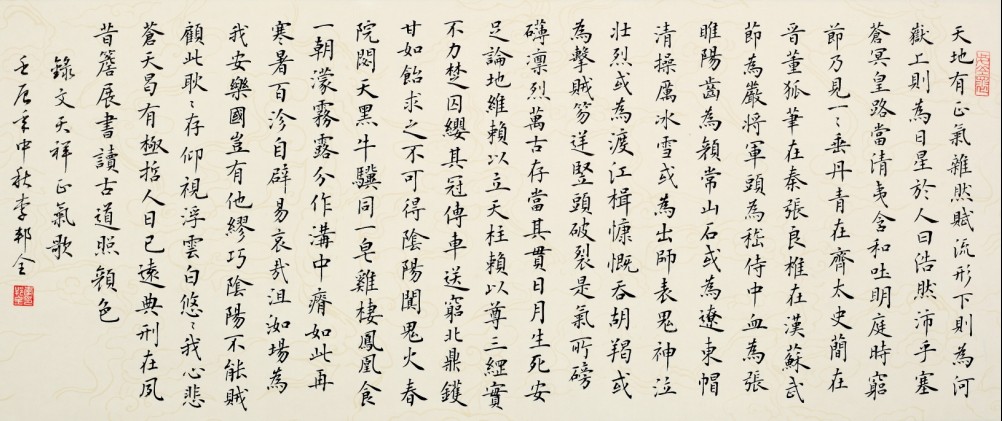 天地有正氣雜然賦流形下則為河
嶽上則為日星於人曰浩然沛乎塞
蒼冥皇路當清夷含和吐明庭時窮
節乃見一〻垂丹青在齊太史簡在
晉董狐筆在秦張良椎在漢蘇武
節為嚴將軍頭為嵇侍中血為張
睢陽齒為顏常山石或為遼東帽
清操厲冰雪或為出師表鬼神泣
壯烈或為渡江楫慷慨吞胡羯或
為擊賊笏逆豎頭破裂是氣所磅
礴凛烈萬古存當其貫日月生死安
足論地維賴以立天柱賴以尊三綱實
不力楚囚纓其冠傳車送窮北鼎鑊
甘如飴求之不可得陰陽闃鬼火春
院閟天黑牛驥同一皂雞棲鳳凰食
一朝濛霧露分作溝中瘠如此再
寒暑百沴自辟易哀哉沮洳場為
我安樂國豈有他繆巧陰陽不能賊
顧此耿〻存仰視浮雲白悠〻我心悲
蒼天曷有極哲人日已遠典刑在夙
昔簷展書讀古道照顏色
錄文天祥正氣歌
壬辰年中秋李邦全